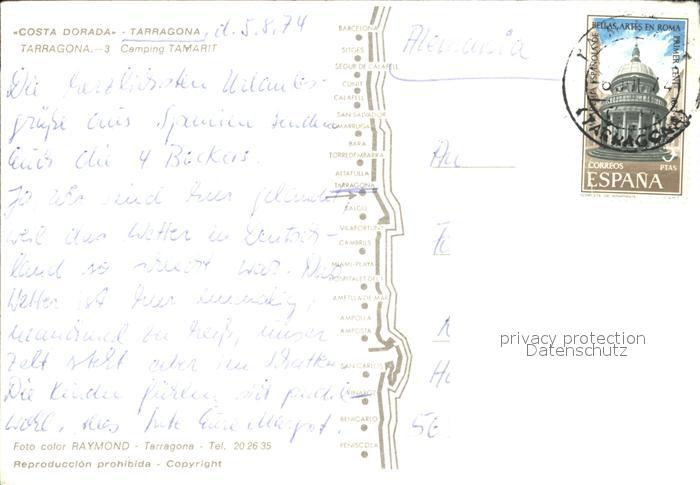 «COSTA DORADA» - TARRAGONA, d. 5.8.74
TARRAGONA.—3 Camping TAMARIT
Die herzlichsten Urlaubs-
grüße aus Spanien senden
Euch die 4 Böckers.
Ja, wir sind hier gelandet
weil das Wetter in Deutsch-
land so schlecht war. Das
Wetter ist hier einmalig,
manchmal zu heiß, unser
Zelt steht aber im Schatten
Die Kinder fühlen sich pudel-
wohl. Alles Gute Eure Margot.
Foto color RAYMOND - Tarragona - Tel. 20 26 35
Reproducción prohibida - Copyright
BARCELONA
SITGES
SEGUR DE CALAFELL
CUNIT
CALAFELL
SAN SALVADOR
COMARRUGA
BARA
TORREDEMBARRA
ALTAFULLA
TARRAGONA
SALOU
VILAFORTUNY
CAMBRILS
MIAMI-PLAYA
HOSPITALET DEL I.
AMETLLA DE MAR
AMPOLLA
AMPOSTA
SAN CARLOS
VINAROZ
BENICARLO
PEÑISCOLA
Alemania
An
56
BELLAS ARTES EN ROMA
PRIMER CENT.
TARRAGONA
3
PTAS
CORREOS
ESPAÑA
privacy protection
Datenschutz